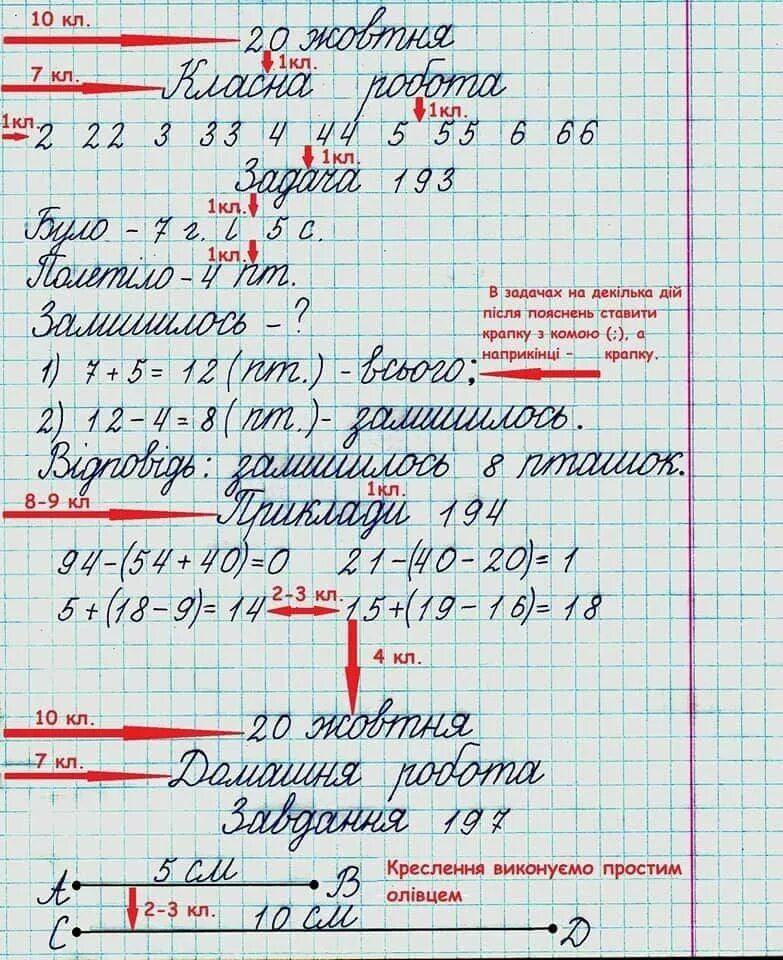 10 кл.
20 жовтня
1кл.
7 кл.
Класна робота
1кл.
1кл.
2 22 3 33 4 44 5 55 6 66
1кл.
Задача 193
1кл.
Було - 7 г. і 5 с.
1кл.
Полетіло - 4 пт.
Залишилось - ?
В задачах на декілька дій
після пояснень ставити
крапку з комою (;), а
наприкінці - крапку.
1) 7 + 5 = 12 (пт.) - всього;
2) 12 - 4 = 8 (пт.) - залишилось.
Відповідь: залишилось 8 пташок.
1кл.
8-9 кл
Приклади 194
94-(54+40)=0 21-(40-20)=1
5+(18-9)=14 2-3 кл. 15+(19-16)=18
4 кл.
10 кл.
20 жовтня
7 кл.
Домашня робота
Завдання 197
5 см
A B
Креслення виконуємо простим
олівцем
2-3 кл.
10 см
C D